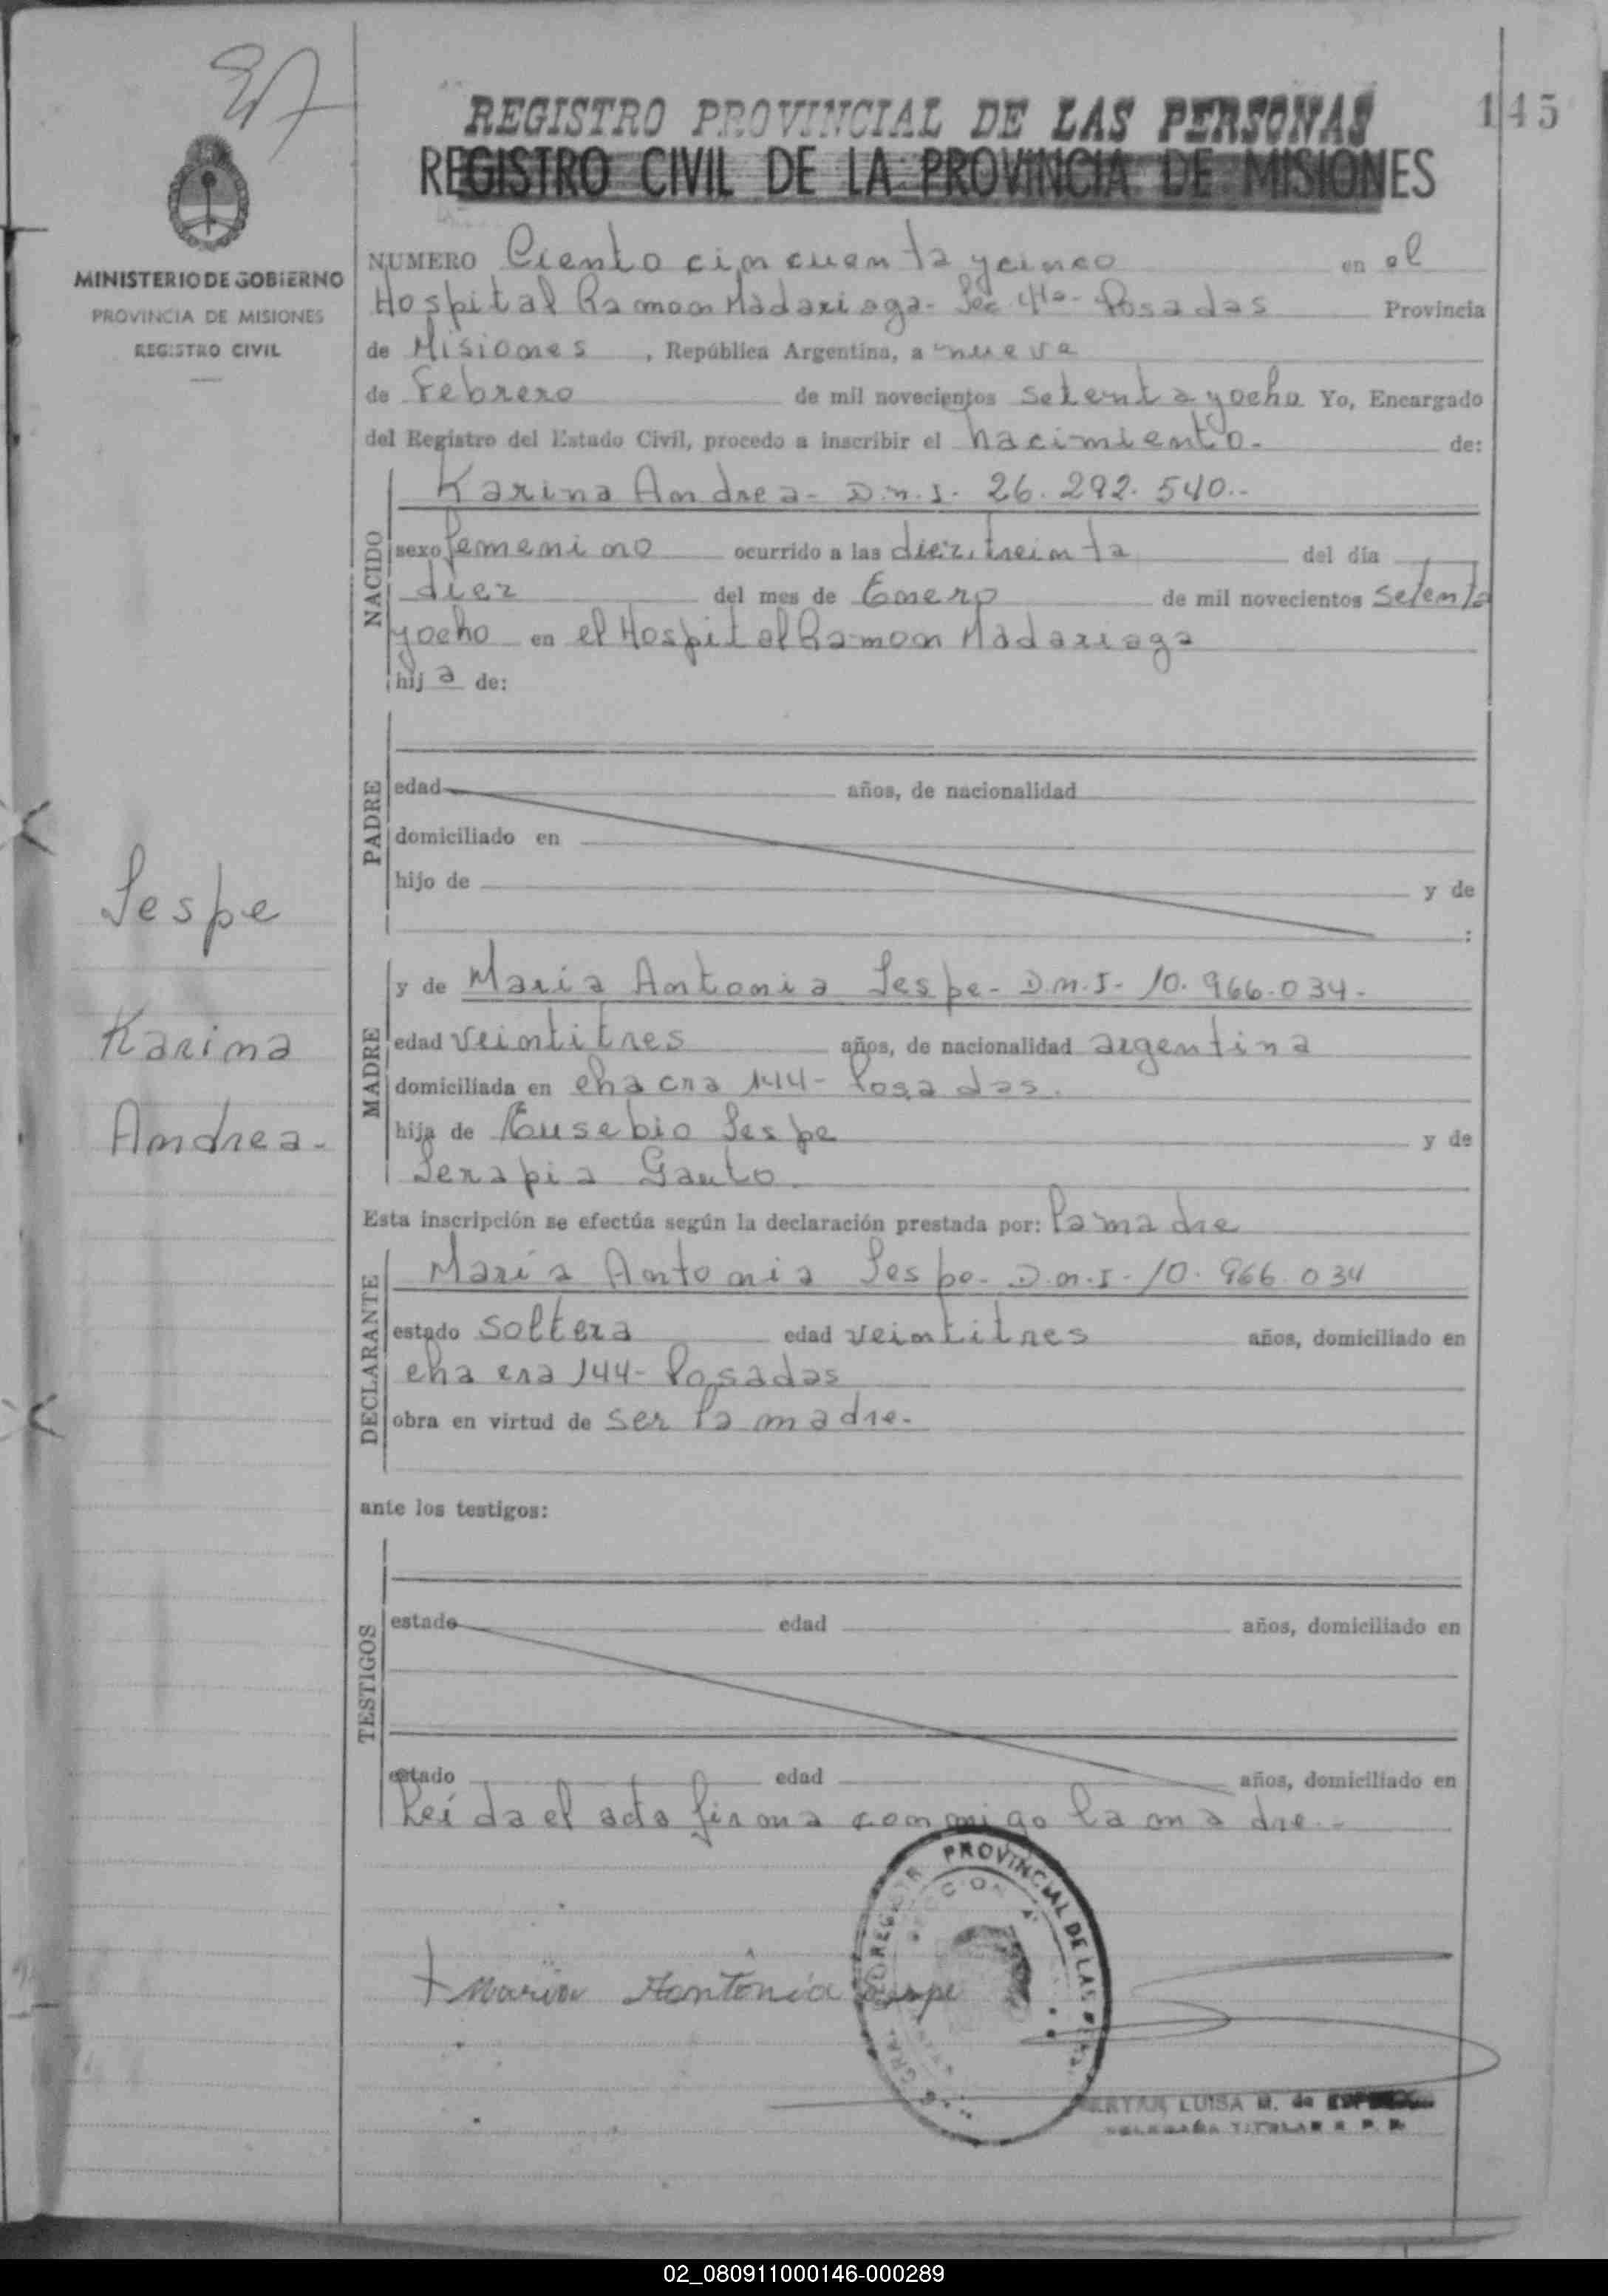 REGISTRO PROVINCIAL DE LAS PERSONAS
145
REGISTRO CIVIL DE LA PROVINCIA DE MISIONES
MINISTERIO DE GOBIERNO
PROVINCIA DE MISIONES
REGISTRO CIVIL
NUMERO Ciento cincuenta y cinco en el
Hospital Ramon Madariaga - Sec 4ta - Posadas Provincia
de Misiones, República Argentina, a nueve
de Febrero de mil novecientos setenta y ocho Yo, Encargado
del Registro del Estado Civil, procedo a inscribir el nacimiento.- de:
NACIDO
Karina Andrea - D.n.I - 26.292.540.-
sexo femenino ocurrido a las diez, treinta del día
diez del mes de Enero de mil novecientos setenta
y ocho en el Hospital Ramon Madariaga
hija de:
PADRE
edad años, de nacionalidad
domiciliado en
hijo de y de
:
Sespe
Karina
Andrea -
MADRE
y de Maria Antonia Sespe - D.n.I - 10.966.034 -
edad veintitres años, de nacionalidad argentina
domiciliada en chacra 144 - Posadas.
hija de Eusebio Sespe y de
Serapia Gauto.
Esta inscripción se efectúa según la declaración prestada por: la madre
DECLARANTE
María Antonia Sespe - D.n.I - 10.966.034
estado soltera edad veintitres años, domiciliado en
chacra 144 - Posadas
obra en virtud de ser la madre.-
ante los testigos:
TESTIGOS
estado edad años, domiciliado en
estado edad años, domiciliado en
Leída el acta firma conmigo la madre.-
PROVINCIAL DE LAS
Maria Hantônia Sespe
LUISA M. de
TITULAR R. P. P.
02_080911000146-000289